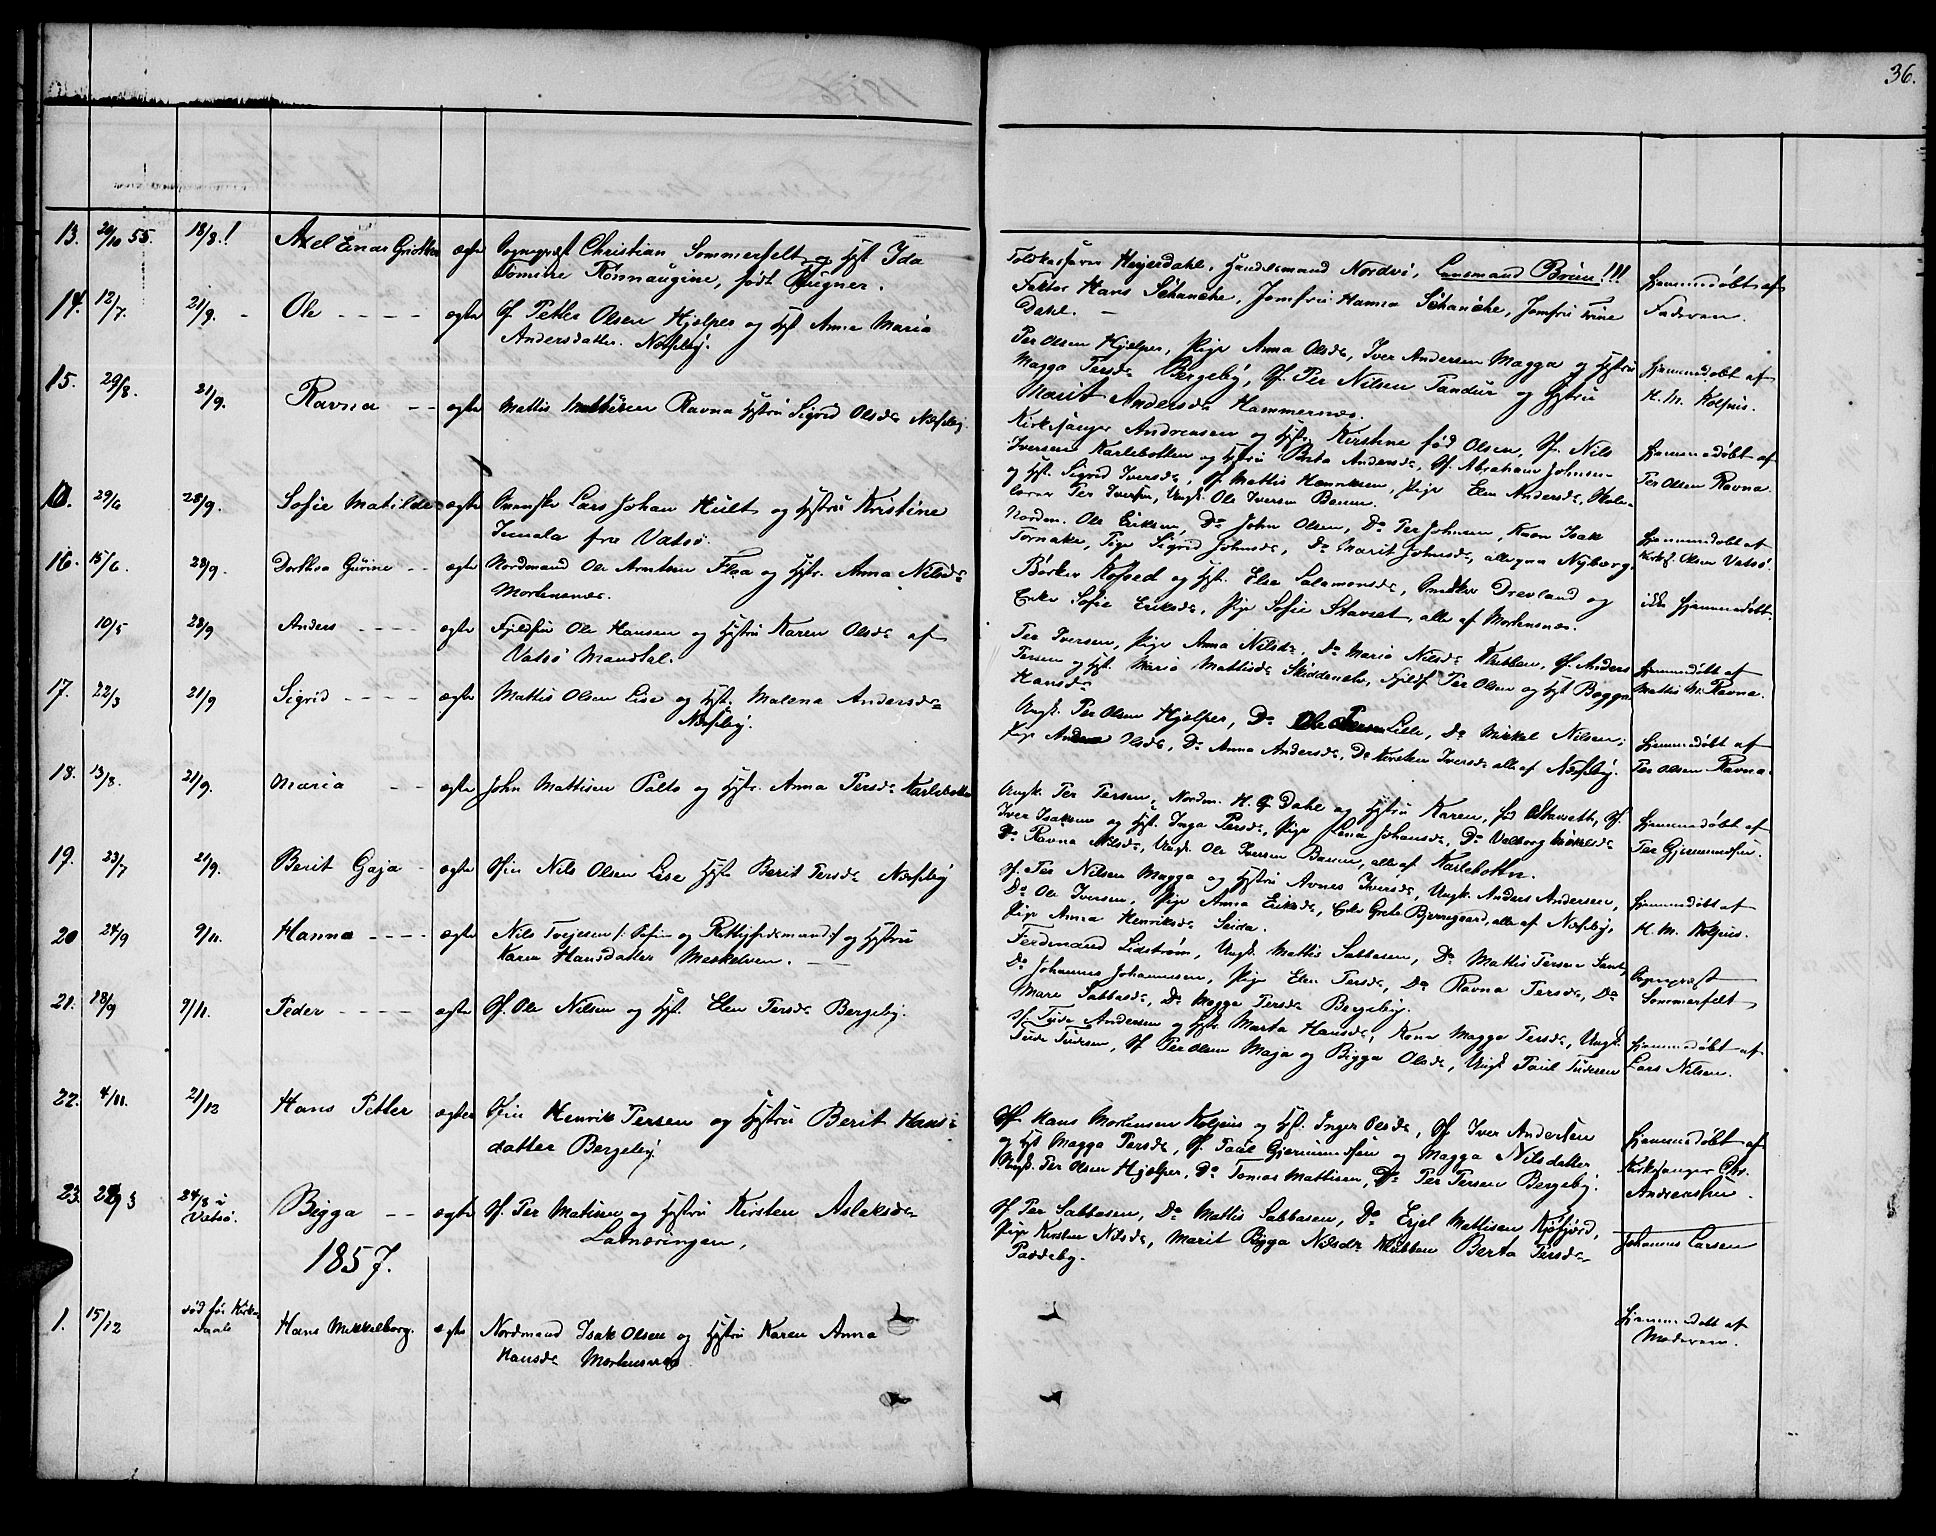 36.
13. 20/10 55. 18/8.! Axel Einar Gjøtterud ægte Sognepræst Christian Sommerfelt og Hst. Ida
Tomine Rønnaugine, født Bugner.
Toldkasserer Heyerdahl, Handelsmand Nordvi, Lensmand Brun!!!
Faktor Hans Schanche, Jomfru Hanna Schanche, Jomfru Trine
Dahl. —
Hjemmedøbt af
Faderen.
14. 12/7. 21/9. - Ole - - - - ægte Sf. Petter Olsen Hjelper og Hst. Anna Maria
Andersdatter. Næsseby.
Per Olsen Hjelper, Pige Anna Olsdr, Iver Andersen Magga og Hustru
Magga Persdr Bergeby, Sf. Per Nilsen Tandur og Hustru
Marit Andersdr Hammernes.
Hjemmedøbt af
H. M. Kolpus.
15. 29/8. 21/9. Ravna - - ægte Mattis Mattisen Ravna Hstru Sigrid Olsdr Næsseby.
Kirkesanger Andreasen og Hstr. Kirstine fød Olsen, Sf. Nils
Iversen Karlebotten og Hstru Berta Andersdr, Sf. Abraham Johnsen
og Hst. Sigrid Iversdr, Sf. Mattis Henriksen, Pige Elen Andersdr, Skole-
lærer Per Iversen, Ungk. Ole Iversen Banun.
Hjemmedøbt af
Per Olsen Ravna.
29/6 28/9. Sofie Matilde ægte Qvenske Lars Johan Hult og Hstru Kristine
Junala fra Vatsø.
Nordm. Ole Eriksen, Do John Olsen, Do Per Johnsen, Kaon Isak
Tornake, Pige Sigrid Johnsdr, Do Marit Johnsdr, alle qna Nyborg.
Hjemmedøbt af
Kirkes. Olsen Vatsø.
16. 15/6. 28/9. Dorthea Gurine - - ægte Nordmand Ole Arntsen Flaa og Hstr. Anna Nilsdr
Mortensnes.
Børker Kofoed og Hst. Else Salamonsdr, Drevland og
Enke Sofie Eriksdr, Pige Sofie Stavset, alle af Mortensnes.
ikke Hjemmedøbt.
10/5 28/9 Anders - - - - ægte Fjeldfin Ole Hansen og Hstru Karen Olsdr af
Vatsø Mandtal.
Per Iversen, Pige Anna Nilsdr, Do Maria Nilsdr Klubben, Sf. Anders
Persen og Hst. Maria Mattisdr Skiddenelv, Fjeldf. Per Olsen og Hst Bigga
Hansdr
Hjemmedøbt af
Mattis M. Ravna.
17. 22/3 21/9 Sigrid - - - - ægte Mattis Olsen Lise og Hst. Malena Andersdr
Næsseby.
Ungk. Per Olsen Hjelper, Do Ole Persen Lille, Do Mikkel Nilsen,
Pige Anna Olsdr, Do Anna Andersdr, Do Kirsten Iversdr alle af Næsseby.
Hjemmedøbt af
Per Olsen Ravna.
18. 13/8. 21/9. Maria - - ægte John Mattisen Palto og Hstr. Anna Persdr Karlebotten
Ungk. Per Persen, Nordm. H. G. Dahl og Hstru Karen, fød Stavseth, Sf.
Iver Isaksen og Hst. Inga Persdr, Pige Elena Johansdr, Do Valborg Mikkelsdr
Do Ravna Nilsdr, Ungk. Ole Iversen Banun, alle af Karlebottn.
Hjemmedøbt af
Per Gjermundsen.
19. 23/7 21/9. Berit Gaja - ægte Sfin Nils Olsen Lise Hst. Berit Persdr Næsseby
Sf. Per Nilsen Magga og Hstru Avnes Iversdr, Ungk. Anders Andersen,
Do Ole Iversen, Pige Anna Eriksdr, Enke Grete Bjerregaard, alle af Næsseby,
Pige Anna Henriksdr Seida.
Hjemmedøbt af
H. M. Kolpus.
20 24/9 9/11. Hanna - - - - ægte Nils Tvejesen /: Søfin og Rettighedsmand :/ og Hstru
Karen Hansdatter Meskelven. —
Ferdinand Lidstrøm, Ungk. Mattis Sabbasen, Do Mattis Persen Sant,
Do Johannes Johannesen, Pige Elen Persdr, Do Ravna Persdr, Do
Mari Sabbasdr, Do Magga Persdr Bergeby.
Sognepræst
Sommerfelt
21. 18/9 9/11. Peder - - - - ægte Sf. Ole Nilsen og Hst. Elen Persdr Bergeby.
Sf. Tude Andersen og Hstr. Marta Hansdr, Kone Magga Persdr, Ungk.
Tude Tudesen, Sf. Per Olsen Maja og Bigga Olsdr, Ungk. Paul Tudesen
Hjemmedøbt af
Lars Nilsen.
22. 4/11. 21/12 Hans Petter ægte Sfin Henrik Persen og Hstru Berit Hans-
datter Bergeby
Sf. Hans Mortensen Kolpus og Hst. Inger Olsdr, Sf. Iver Andersen
og Hst Magga Persdr, Sf. Paul Gjermundsen og Magga Nilsdatter
Ungk. Per Olsen Hjelper, Do Tomas Mattisen, Do Per Persen Bergeby.
Hjemmedøbt af
Kirkesanger Chr.
Andreassen.
23. 24/8 i
Vatsø. Bigga - - ægte Sf. Per Matisen og Hstru Kirsten Aslaksdr
Latnæringen,
Sf. Per Sabbasen, Do Mattis Sabbasen, Do Erjel Mattisen Kjøfjord,
Pige Kirsten Nilsdr, Marit Bigga Nilsdr Klubben Berta Persdr
Paddeby.
Johannes Larsen
1857.
1. 15/12 død før Kirke-
daab Hans Mikkelborg. ægte Nordmand Isak Olsen og Hstru Karen Anna
Hansdr Mortensnes
Hjemmedøbt af
Moderen.